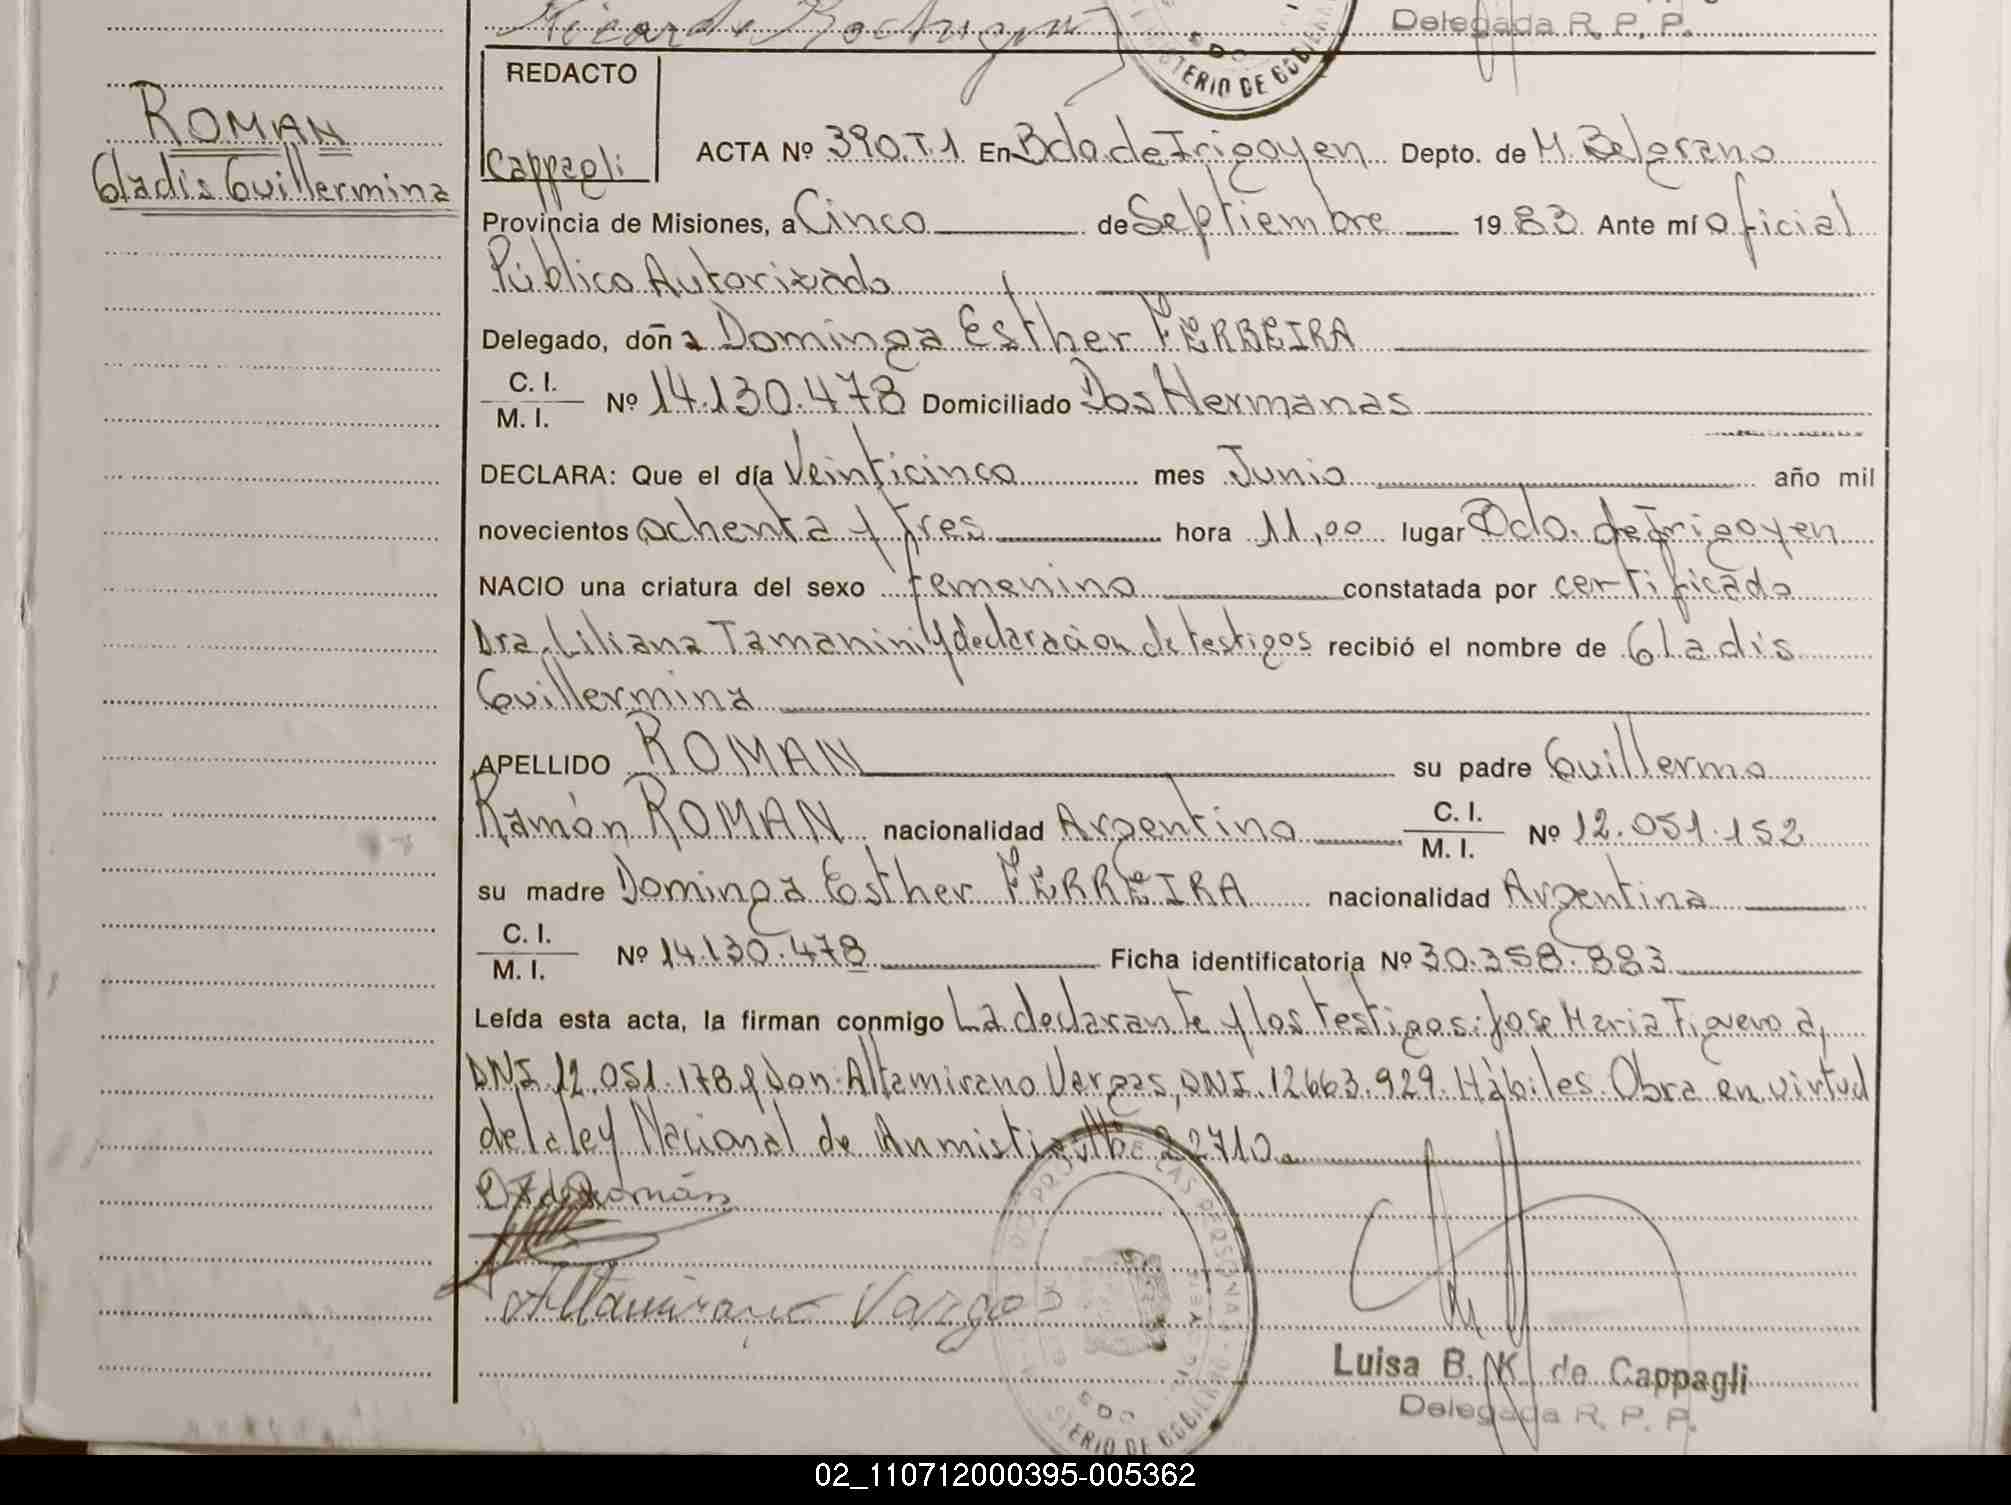 Delegada R. P. P.
MINISTERIO DE GOBIERNO
REDACTO
Cappagli
ROMAN
Gladis Guillermina
ACTA Nº 390.T.1 En Bdo. de Irigoyen Depto. de M. Belgrano
Provincia de Misiones, a Cinco de Septiembre 1983 Ante mí oficial
Público Autorizado
Delegado, doña Dominga Esther FERREIRA
C. I.
M. I. Nº 14.130.478 Domiciliado Dos Hermanas
DECLARA: Que el día Veinticinco mes Junio año mil
novecientos ochenta y tres hora 11,00 lugar Bdo. de Irigoyen
NACIO una criatura del sexo femenino constatada por certificado
Dra. Liliana Tamanini y declaración de testigos recibió el nombre de Gladis
Guillermina
APELLIDO ROMAN su padre Guillermo
Ramón ROMAN nacionalidad Argentino C. I.
M. I. Nº 12.051.152
su madre Dominga Esther FERREIRA nacionalidad Argentina
C. I.
M. I. Nº 14.130.478 Ficha identificatoria Nº 30.358.883
Leída esta acta, la firman conmigo La declarante y los testigos: José María Figueroa,
DNI 12.051.178 y Don: Altamirano Vargas, DNI. 12.663.929. Hábiles. Obra en virtud
de la ley Nacional de Anmistia Nº 22710.
Altamirano Vargas
Luisa B. K. de Cappagli
Delegada R. P. P.
02_110712000395-005362